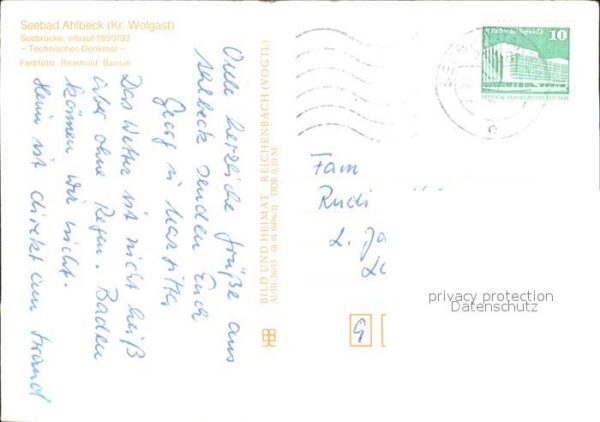 Seebad Ahlbeck (Kr. Wolgast)
Seebrücke, erbaut 1899/92
– Technisches Denkmal –
Farbfoto: Reinhold, Bansin
Viele herzliche Grüße aus
Ahlbeck senden Euch
Georg u Martha
Das Wetter ist nicht heiß
aber ohne Regen. Baden
können wir nicht.
Heim ist direkt am Strand
BILD UND HEIMAT REICHENBACH (VOGTL)
DDR 0,20 M
10
Palast der Republik
DEUTSCHE DEMOKRATISCHE REPUBLIK
Fam
Rudi
privacy protection
Datenschutz